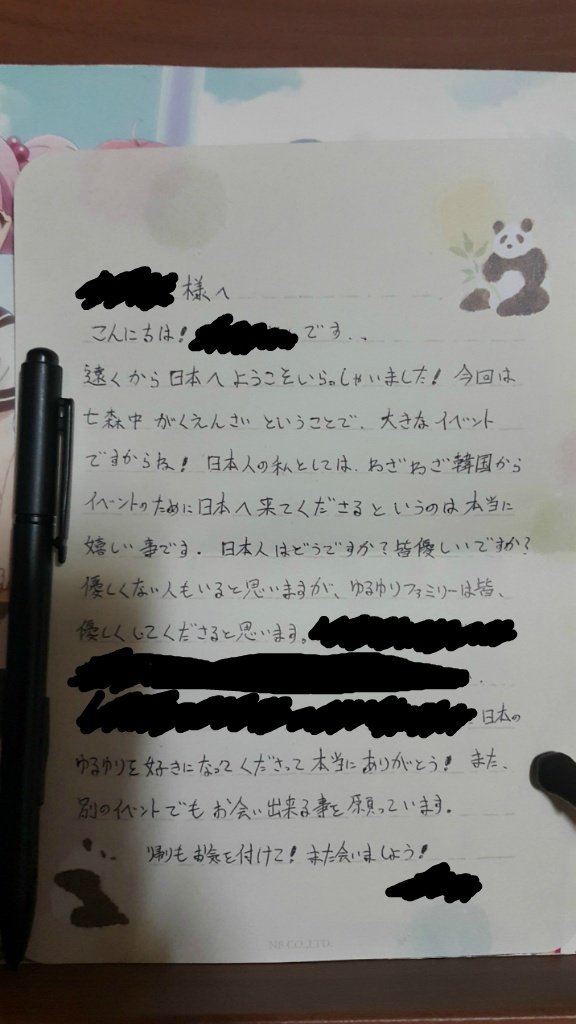 様へ
こんにちは! です..
遠くから日本へようこそいらっしゃいました! 今回は
七森中がくえんさいということで、大きなイベント
ですからね! 日本人の私としては、わざわざ韓国から
イベントのために日本へ来てくださるというのは本当に
嬉しい事です. 日本人はどうですか?皆優しいですか?
優しくない人もいると思いますが、ゆるゆりファミリーは皆、
優しくしてくださると思います。
日本の
ゆるゆりを好きになってくださって本当にありがとう! また、
別のイベントでもお会い出来る事を願っています.
帰りもお気を付けて! また会いましょう!
NB CO.,LTD.